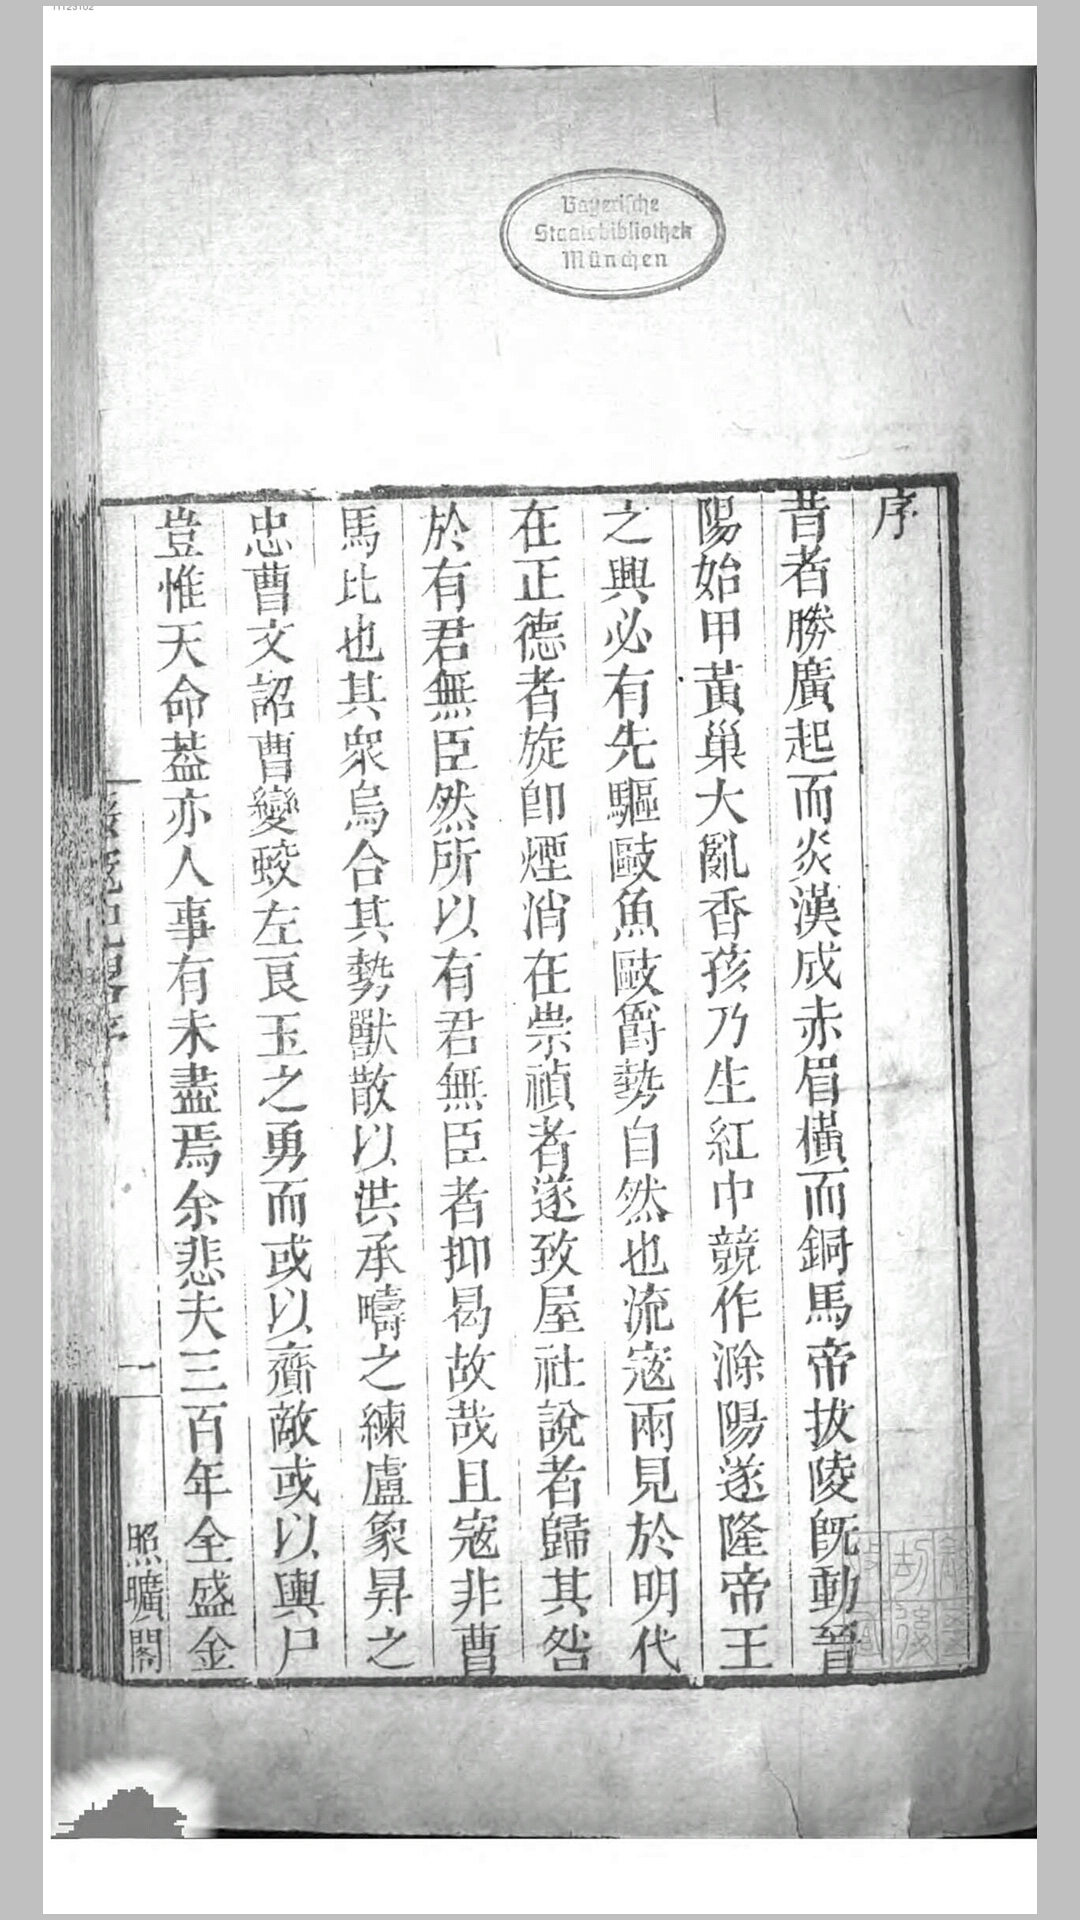 11123102
Bayerische
Staatsbibliothek
München
序
昔者勝廣起而炎漢成赤眉橫而銅馬帝拔陵旣動晉
陽始甲黃巢大亂香孩乃生紅巾競作滁陽遂隆帝王
之興必有先驅敺魚敺爵勢自然也流寇兩見於明代
在正德者旋卽煙消在崇禎者遂致屋社說者歸其咎
於有君無臣然所以有君無臣者抑曷故哉且寇非曹
馬比也其衆烏合其勢獸散以洪承疇之練盧象昇之
忠曹文詔曹變蛟左良玉之勇而或以齎敵或以輿尸
豈惟天命葢亦人事有未盡焉余悲夫三百年全盛金
一
照曠閣